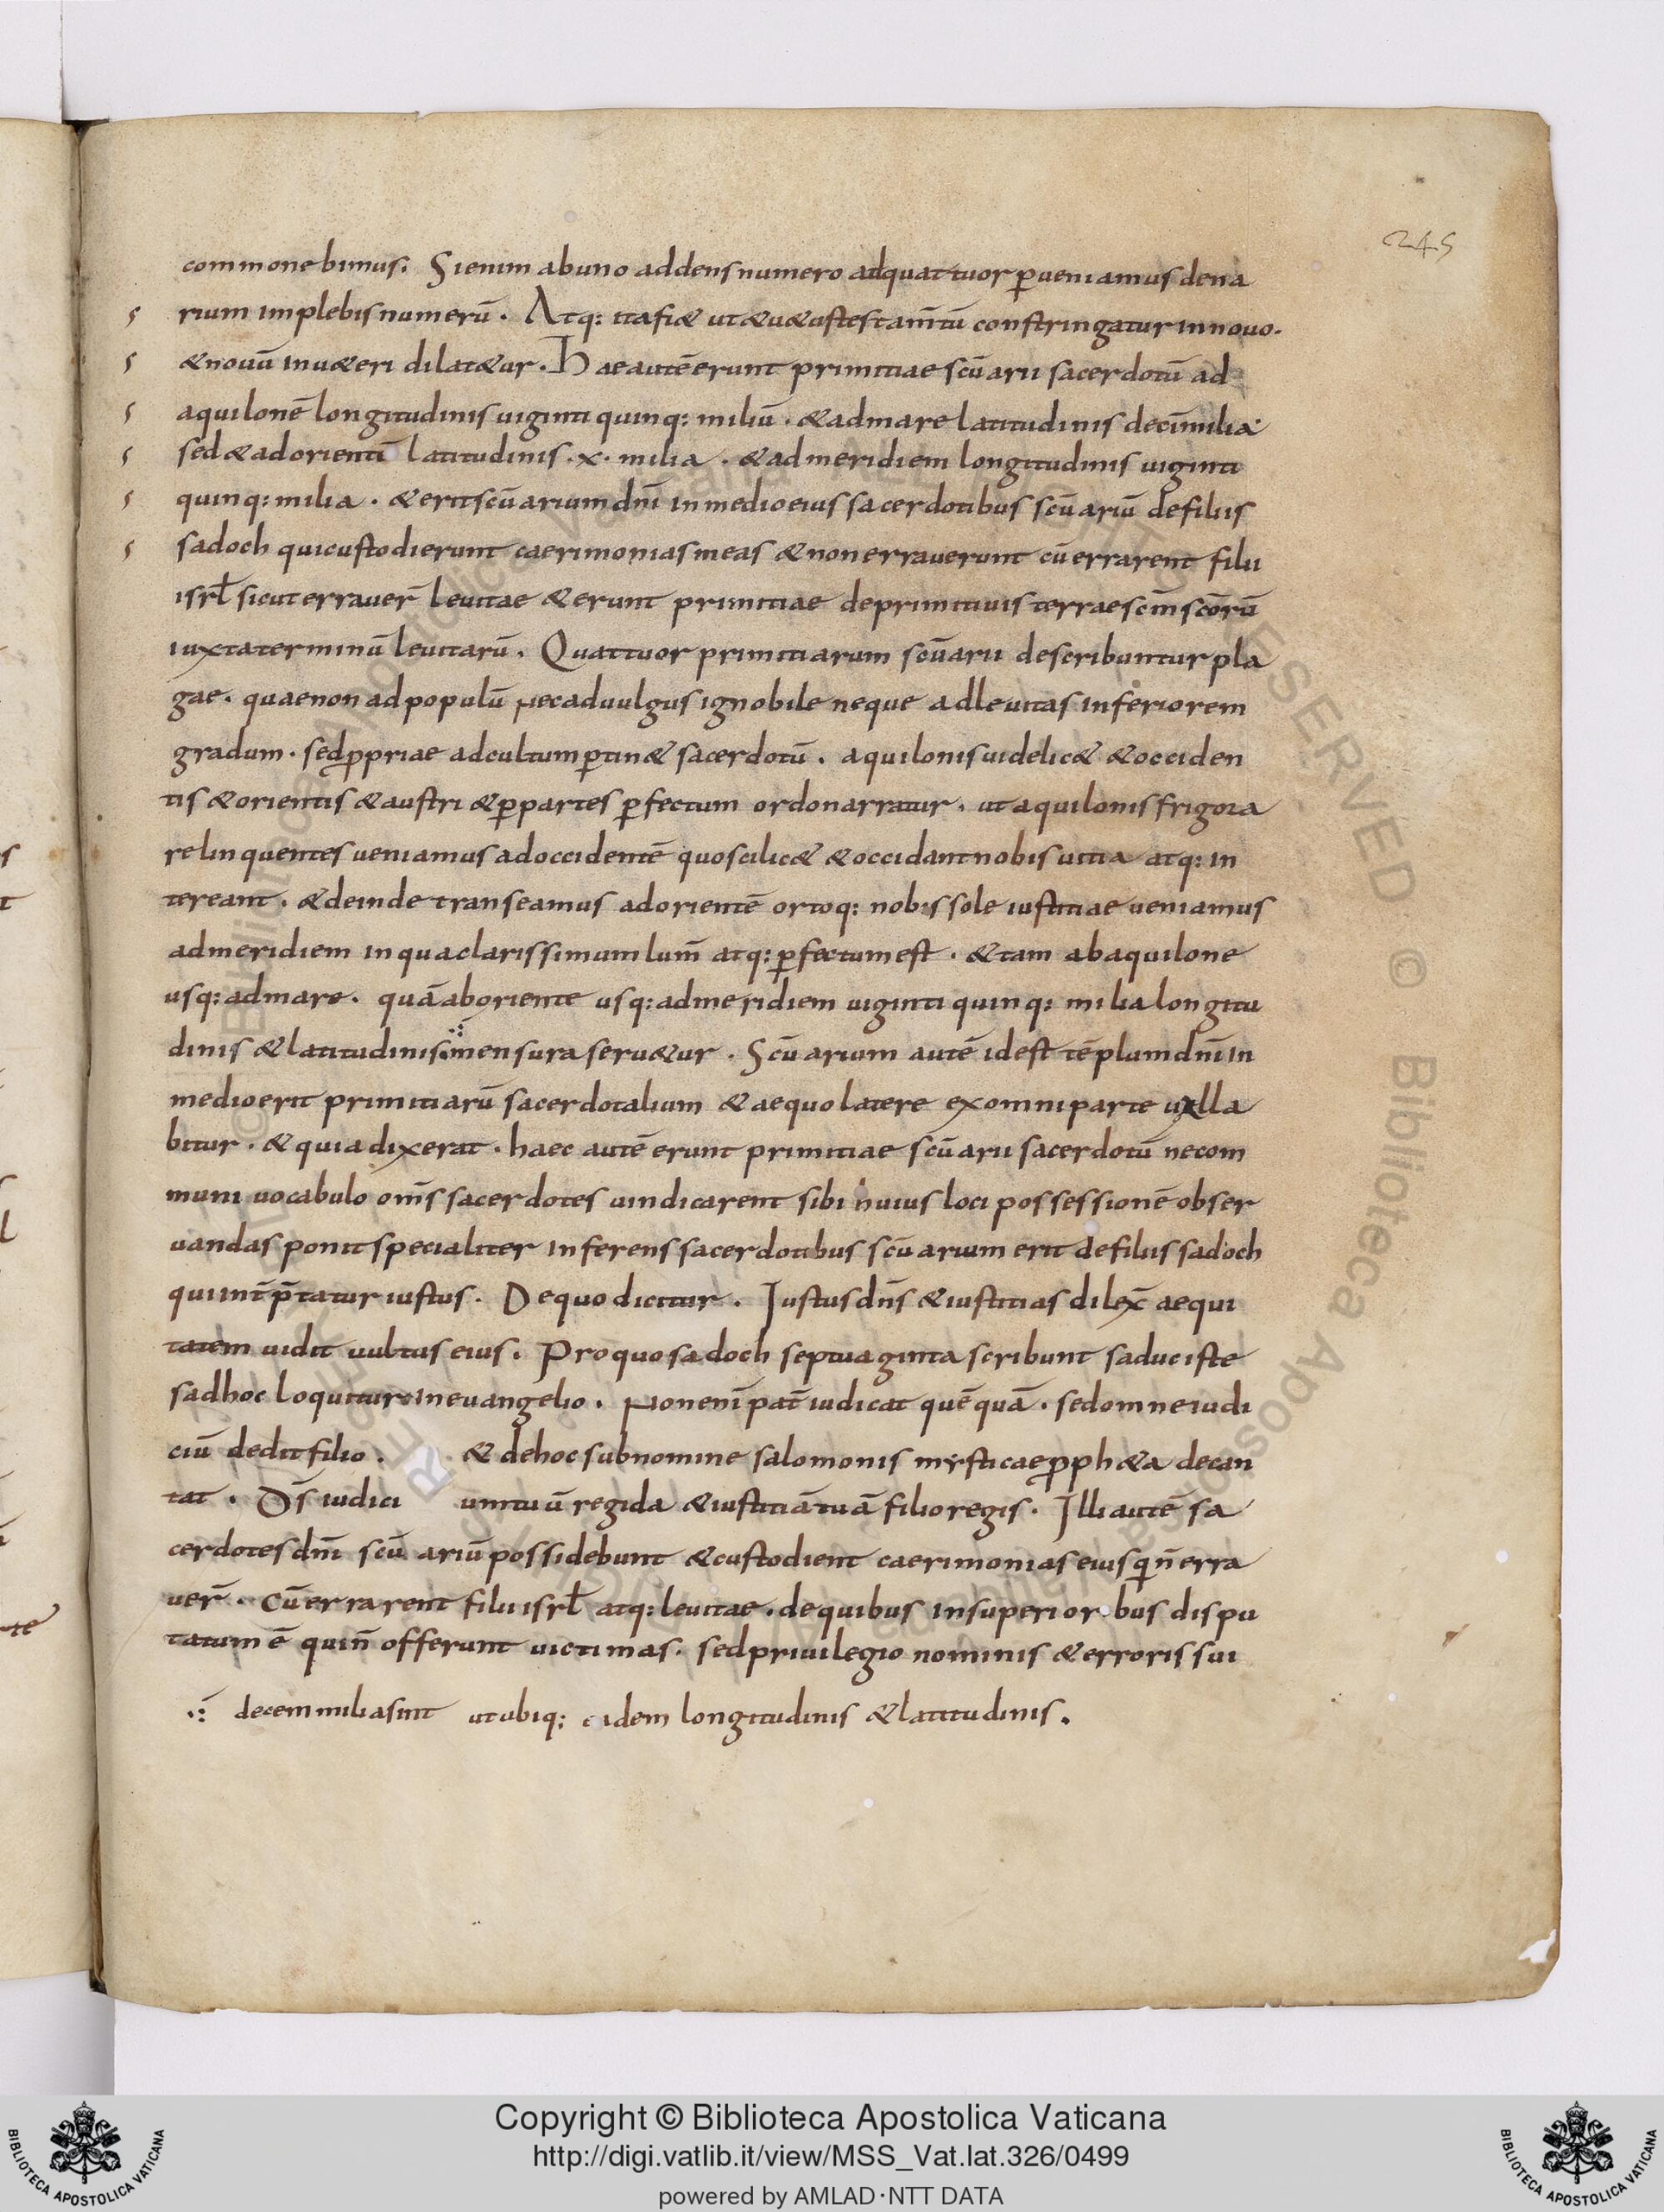 245
commonebimus. Sienim abuno addensnumero adquattuor ꝑueniamus dena
rium implebisnumerū. Atq: itafi& ut&u&ustestam̄tū constringatur innouo.
&nouū inu&eri dilat&ur. Haeautēerunt primitiae scūarii sacerdotū ad
aquilonē longitudinis uiginti quinq: miliū. &admare latitudinis decīmilia
sed&adorientī latitudinis .x. milia. &admeridiem longitudinis uiginti
quinq: milia. &eritscūarium dnī inmedioeius sacerdotibus scūariū defiliis
sadoch quicustodierunt caerimoniasmeas &nonerrauerunt cūerrarent filii
isrł sicuterrauer̄ leuitae &erunt primitiae deprimitiuis terraescīmscōrū
iuxtaterminū leuitarū. Quattuor primitiarum scūarii describuntur pla
gae. quaenon adpopulū necaduulgus ignobile neque adleuitas inferiorem
gradum. sedꝓpriae adcultumꝑtin& sacerdotū. aquilonisuidelic& &occiden
tis &orientis &austri &ꝑpartes ꝑfectum ordonarratur. ut aquilonisfrigora
relinquentes ueniamus adoccidentē quoscilic& &occidantnobis uitia atq: in
tereant. &deinde transeamus adorientē ortoq: nobis sole iustitiae ueniamus
admeridiem inquaclarissimumlum̄ atq: ꝑfectumest. &tam abaquilone
usq: admare. quāaboriente usq: admeridiem uiginti quinq: milia longitu
dinis &latitudinis mensura seru&ur. Scūarium autē idest tēplumdnī in
medioerit primitiarū sacerdotalium &aequolatere exomniparte uxlla
bitur. &quiadixerat. haec autē erunt primitiae scūarii sacerdotū necom
muni uocabulo om̄s sacerdotes uindicarent sibi huius loci possessionē obser
uandas ponit specialiter inferens sacerdotibus scūarium erit defiliis sadoch
quiint̄p̄tatur iustus. Dequodicitur. Justusdn̄s &iustitias dilex̄ aequi
tatem uidit uultus eius. Proquosadoch septuaginta scribunt saduciste
sadhoc loquitur inevangelio. Nonenī pat̄ iudicat quēquā. sedomneiudi
ciū deditfilio. &dehocsubnomine salomonis mysticaeꝓph&a decan
tat. Ds̄ iudici umtuū regida &iustitiātuā filioregis. Jlliautē sa
cerdotesdnī scūariūpossidebunt &custodient caerimoniaseiusqin̄erra
uer̄. Cūerrarent filiiisrł atq: leuitae. dequibus insuperioribus dispu
tatumē quin̄ offerunt uictimas. sedpriuilegio nominis &erroris sui
.:̄ decemmiliasint utubiq: eidem longitudinis &latitudinis.
Copyright © Biblioteca Apostolica Vaticana
http://digi.vatlib.it/view/MSS_Vat.lat.326/0499
powered by AMLAD·NTT DATA
BIBLIOTECA APOSTOLICA VATICANA
BIBLIOTECA APOSTOLICA VATICANA